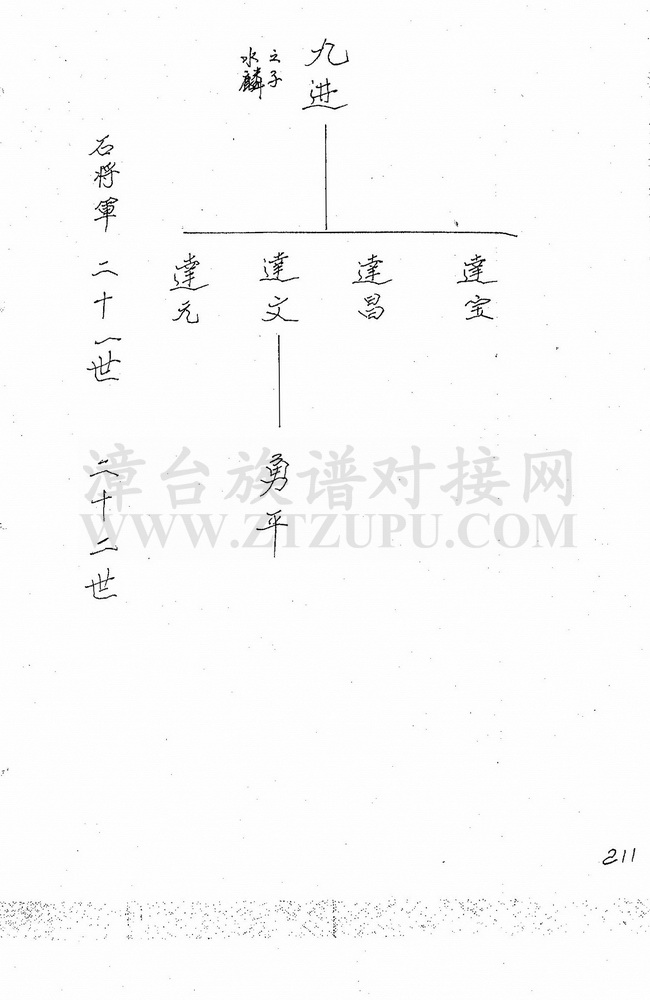 九进
水麟之子
石将軍二十一世
達宝
達昌
達文
達元
二十二世
勇平
漳台族谱对接网
WWW.ZTZUPU.COM
211